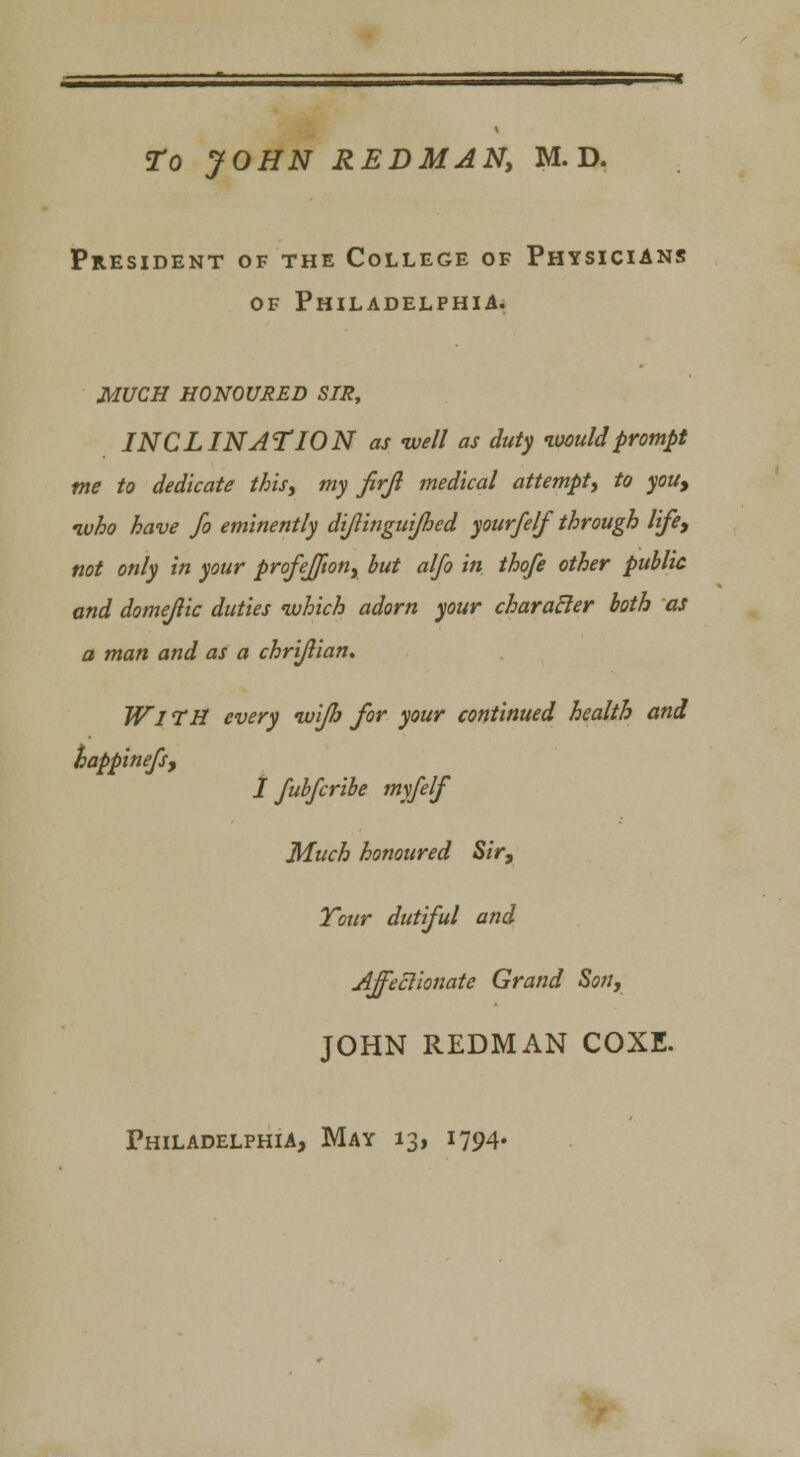 To JOHN REDMAN, M. D.
PRESIDENT OF THE COLLEGE OF PHYSICIANS
OF PHILADELPHIA.
MUCH HONOURED SIR,
INCLINATION as well as duty would prompt
me to dedicate this, my firſt medical attempt, to you,
who have ſo eminently diſtinguiſhed yourſelf through life,
not only in your profeſſion, but alſo in thoſe other public
and domeſtic duties which adorn your character both as
a man and as a chriſtian.
WITH every wiſh for your continued health and
happineſs,
I ſubſcribe myſelf
Much honoured Sir,
Your dutiful and
Affectionate Grand Son,
JOHN REDMAN COXE.
PHILADELPHIA, MAY 13, 1794.